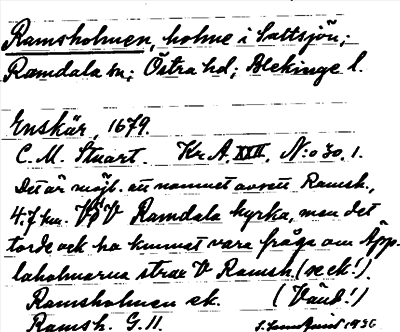 Ramsholmen, holme i Saltsjön;
Ramdala sn; Östra hd; Blekinge l.
Enskär, 1679.
C. M. Stuart. Kr. A. XXII, N:o 30, 1.
Det är möjl. att namnet avsett Ramsh.,
4.7 km. VSV Ramdala kyrka, men det
torde ock ha kunnat vara fråga om Äpp-
laholmarna strax V Ramsh. (se ek!).
Ramsholmen ek. (Vänd!)
Ramsh. G. 11. 1936